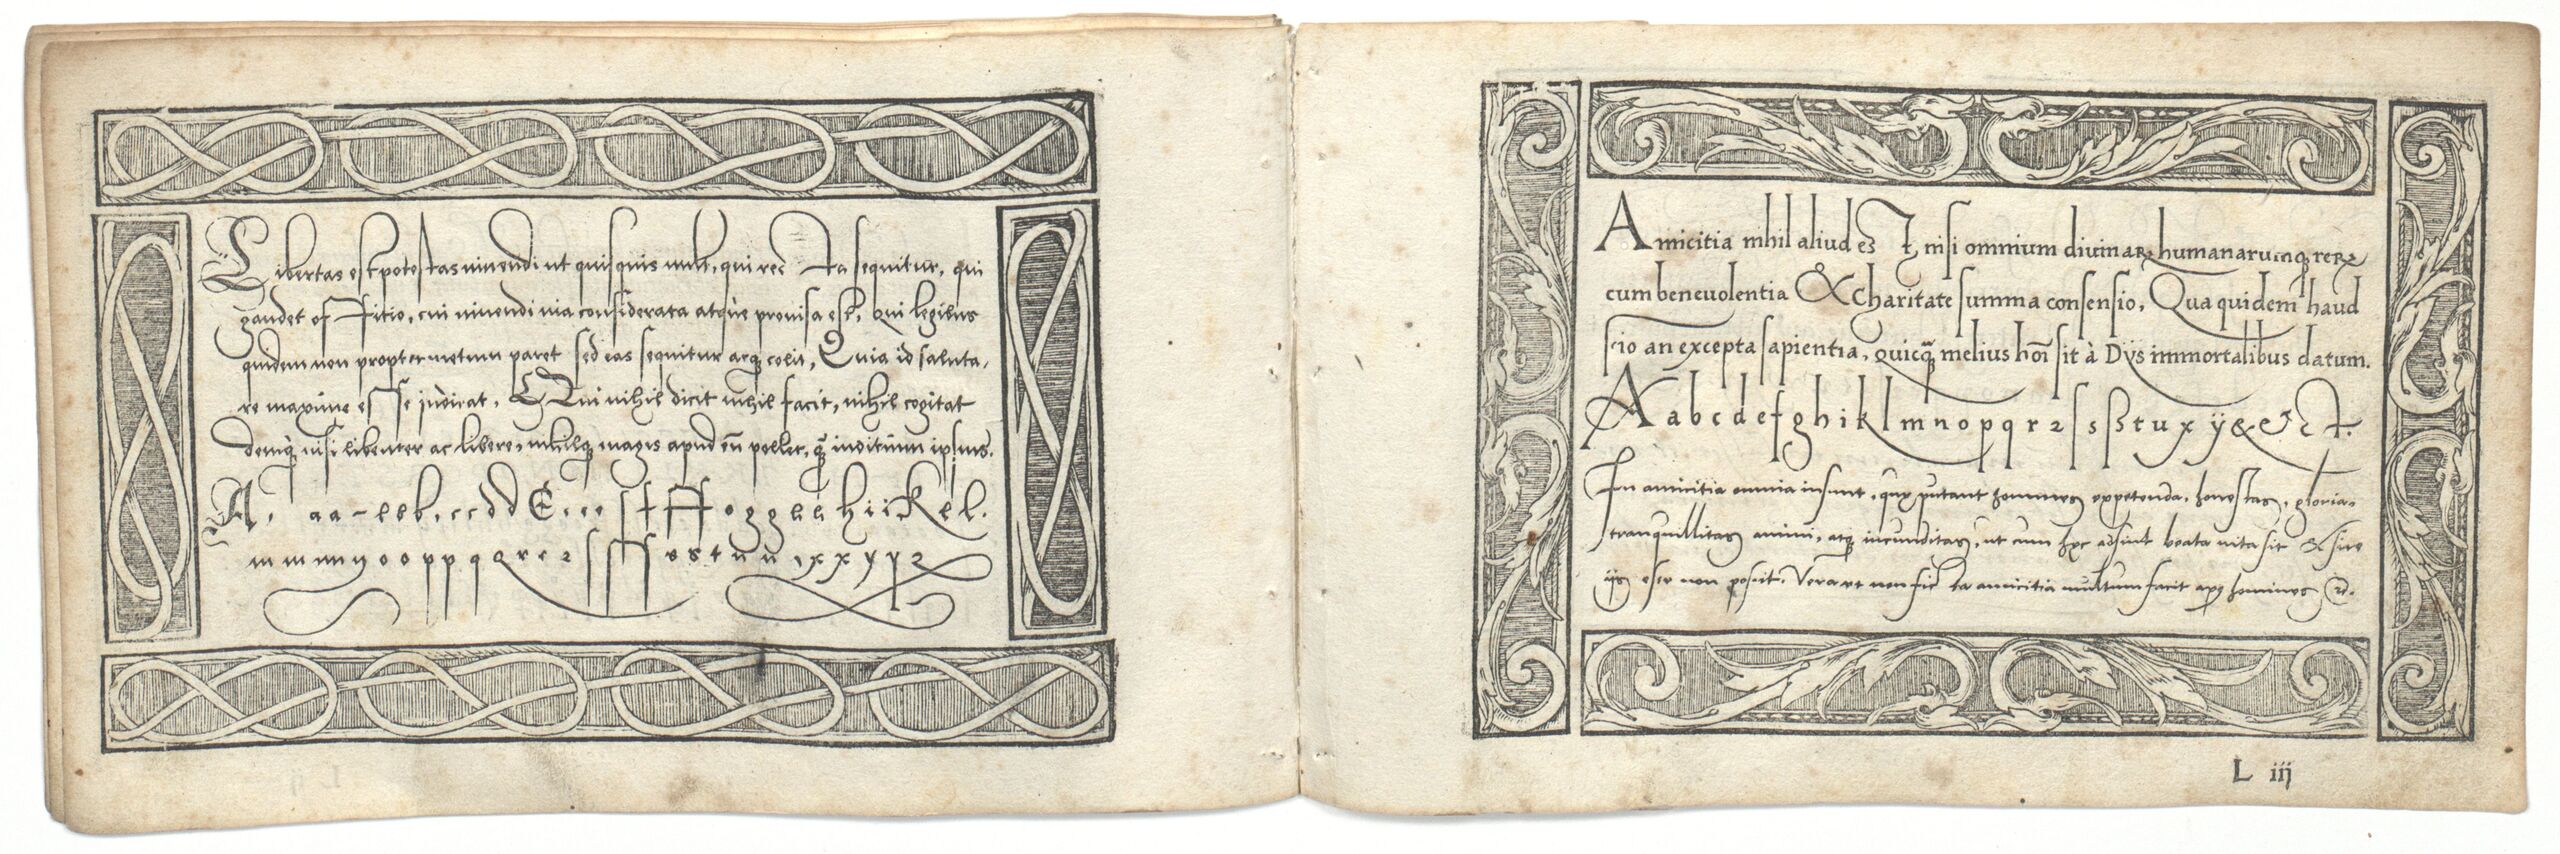 Libertas est potestas uiuendi ut quisquis uult, qui recta sequitur, qui
gaudet officio, cui uiuendi uia considerata atque prouisa est, Qui legibus
quidem non propter metum paret sed eas sequitur atq; colit, Quia id saluta-
re maxime esse iudicat, Qui nihil dicit nihil facit, nihil cogitat
deniq; nisi libenter ac libere, nihilq; magis apud eū pollet, q̃ iuditium ipsius.
A, aa-bbb,ccddE,eeſtffogghhhiikkell.
mmmnyooppqqrrzſſſſsstuu,xxyyz
Amicitia nihil aliud est nisi omnium diuinaꝝ humanarumq; reꝝ
cum beneuolentia & charitate summa consensio, Qua quidem haud
scio an excepta sapientia, quicq̃ melius hoī sit à Dijs immortalibus datum.
A a b c d e f g h i k l m n o p q r ꝛ ſ s ß t u x ÿ & ct st.
In amicitia omnia insunt, quę putant homines expetenda, honestas, gloria,
tranquillitas animi, atq; iucunditas, ut cum hęc adsint beata uita sit & sine
ijs esse non possit. Vera et non ficta amicitia multum facit apud homines &.
L iij